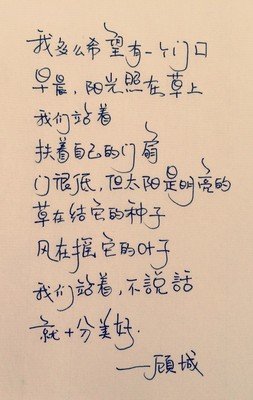 我多么希望有一个门口
早晨，阳光照在草上
我们站着
扶着自己的门扇
门很低，但太阳是明亮的
草在结它的种子
风在摇它的叶子
我们站着，不說話
就十分美好.
——顾城